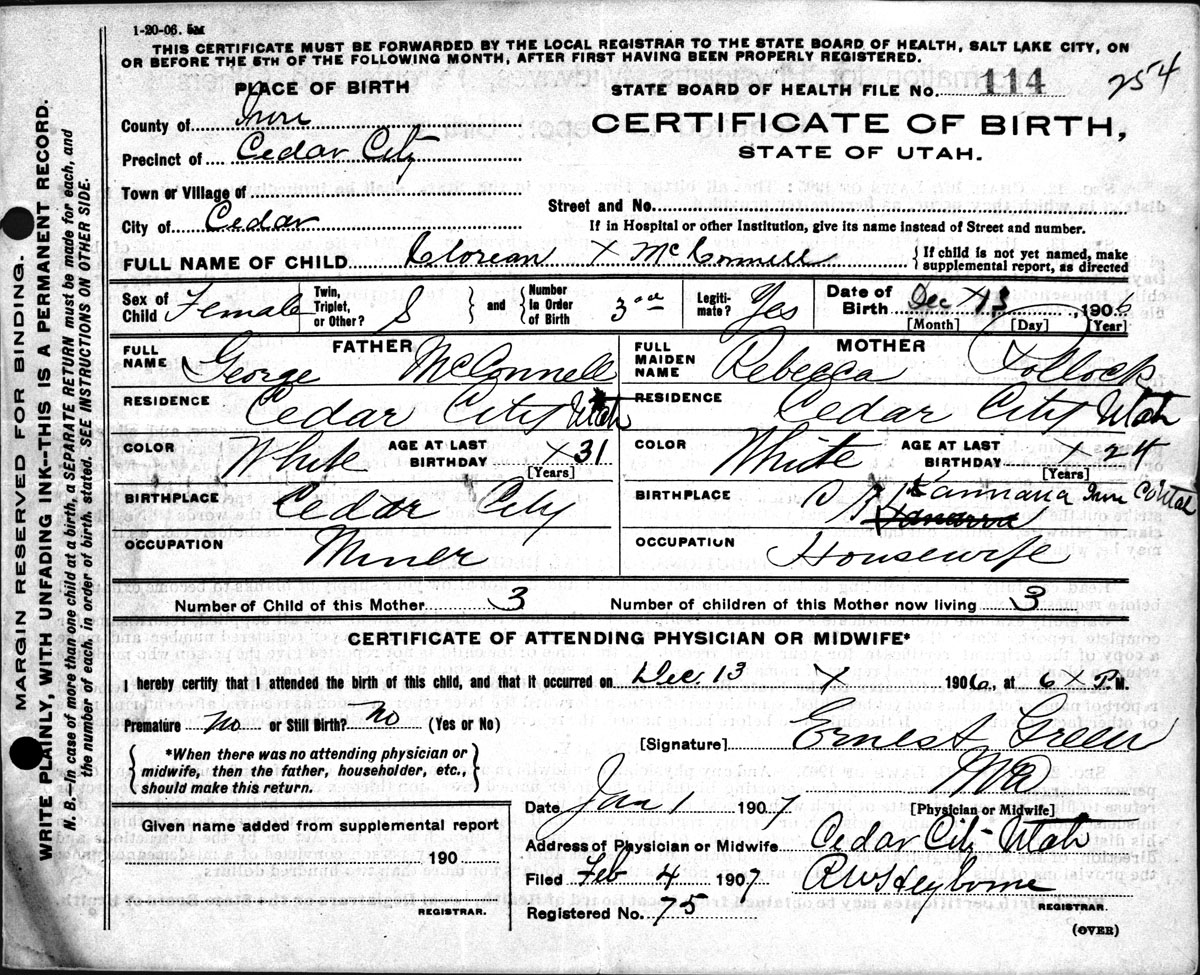 1-20-06. 5M
THIS CERTIFICATE MUST BE FORWARDED BY THE LOCAL REGISTRAR TO THE STATE BOARD OF HEALTH, SALT LAKE CITY, ON
OR BEFORE THE 5TH OF THE FOLLOWING MONTH, AFTER FIRST HAVING BEEN PROPERLY REGISTERED.
PLACE OF BIRTH
STATE BOARD OF HEALTH FILE No. 114
254
County of Iron
CERTIFICATE OF BIRTH,
Precinct of Cedar City
STATE OF UTAH.
Town or Village of
Street and No.
City of Cedar
If in Hospital or other Institution, give its name instead of Street and number.
FULL NAME OF CHILD Clorean X McConnell
{ If child is not yet named, make supplemental report, as directed
Sex of Child Female
Twin, Triplet, or Other? S and Number in Order of Birth 3rd
Legitimate? Yes
Date of Birth Dec X 13, 1906
[Month] [Day] [Year]
FATHER
FULL NAME George McConnell
RESIDENCE Cedar City Utah
COLOR White AGE AT LAST BIRTHDAY X 31
[Years]
BIRTHPLACE Cedar City
OCCUPATION Miner
MOTHER
FULL MAIDEN NAME Rebecca Pollock
RESIDENCE Cedar City Utah
COLOR White AGE AT LAST BIRTHDAY X 24
[Years]
BIRTHPLACE Kannara Iron Co Utah
OCCUPATION Housewife
Number of Child of this Mother 3 Number of children of this Mother now living 3
CERTIFICATE OF ATTENDING PHYSICIAN OR MIDWIFE*
I hereby certify that I attended the birth of this child, and that it occurred on Dec. 13 X 1906, at 6 X P. M.
Premature No or Still Birth? No (Yes or No)
{ *When there was no attending physician or midwife, then the father, householder, etc., should make this return. }
[Signature] Ernest Green
MD
[Physician or Midwife]
Date Jan 1 1907
Given name added from supplemental report
190
REGISTRAR.
Address of Physician or Midwife Cedar City Utah
Filed Feb 4 1907 R W Heyborne
REGISTRAR.
Registered No. 75
(OVER)
MARGIN RESERVED FOR BINDING.
WRITE PLAINLY, WITH UNFADING INK--THIS IS A PERMANENT RECORD.
N. B.--In case of more than one child at a birth, a SEPARATE RETURN must be made for each, and
the number of each, in order of birth, stated. SEE INSTRUCTIONS ON OTHER SIDE.